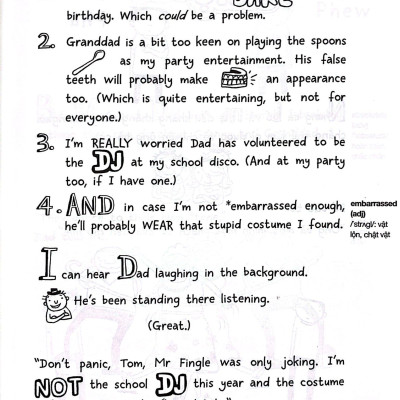 birthday. Which could be a problem.
2. Granddad is a bit too keen on playing the spoons
as my party entertainment. His false
teeth will probably make an appearance
too. (Which is quite entertaining, but not for
everyone.)
3. I'm REALLY worried Dad has volunteered to be
the DJ at my school disco. (And at my party
too, if I have one.)
4. AND in case I'm not *embarrassed enough,
he'll probably WEAR that stupid costume I found.
embarrassed
(adj)
/'strʌgl/: vật
lộn, chật vật
I can hear Dad laughing in the background.
He's been standing there listening.
(Great.)
"Don't panic, Tom, Mr Fingle was only joking. I'm
NOT the school DJ this year and the costume